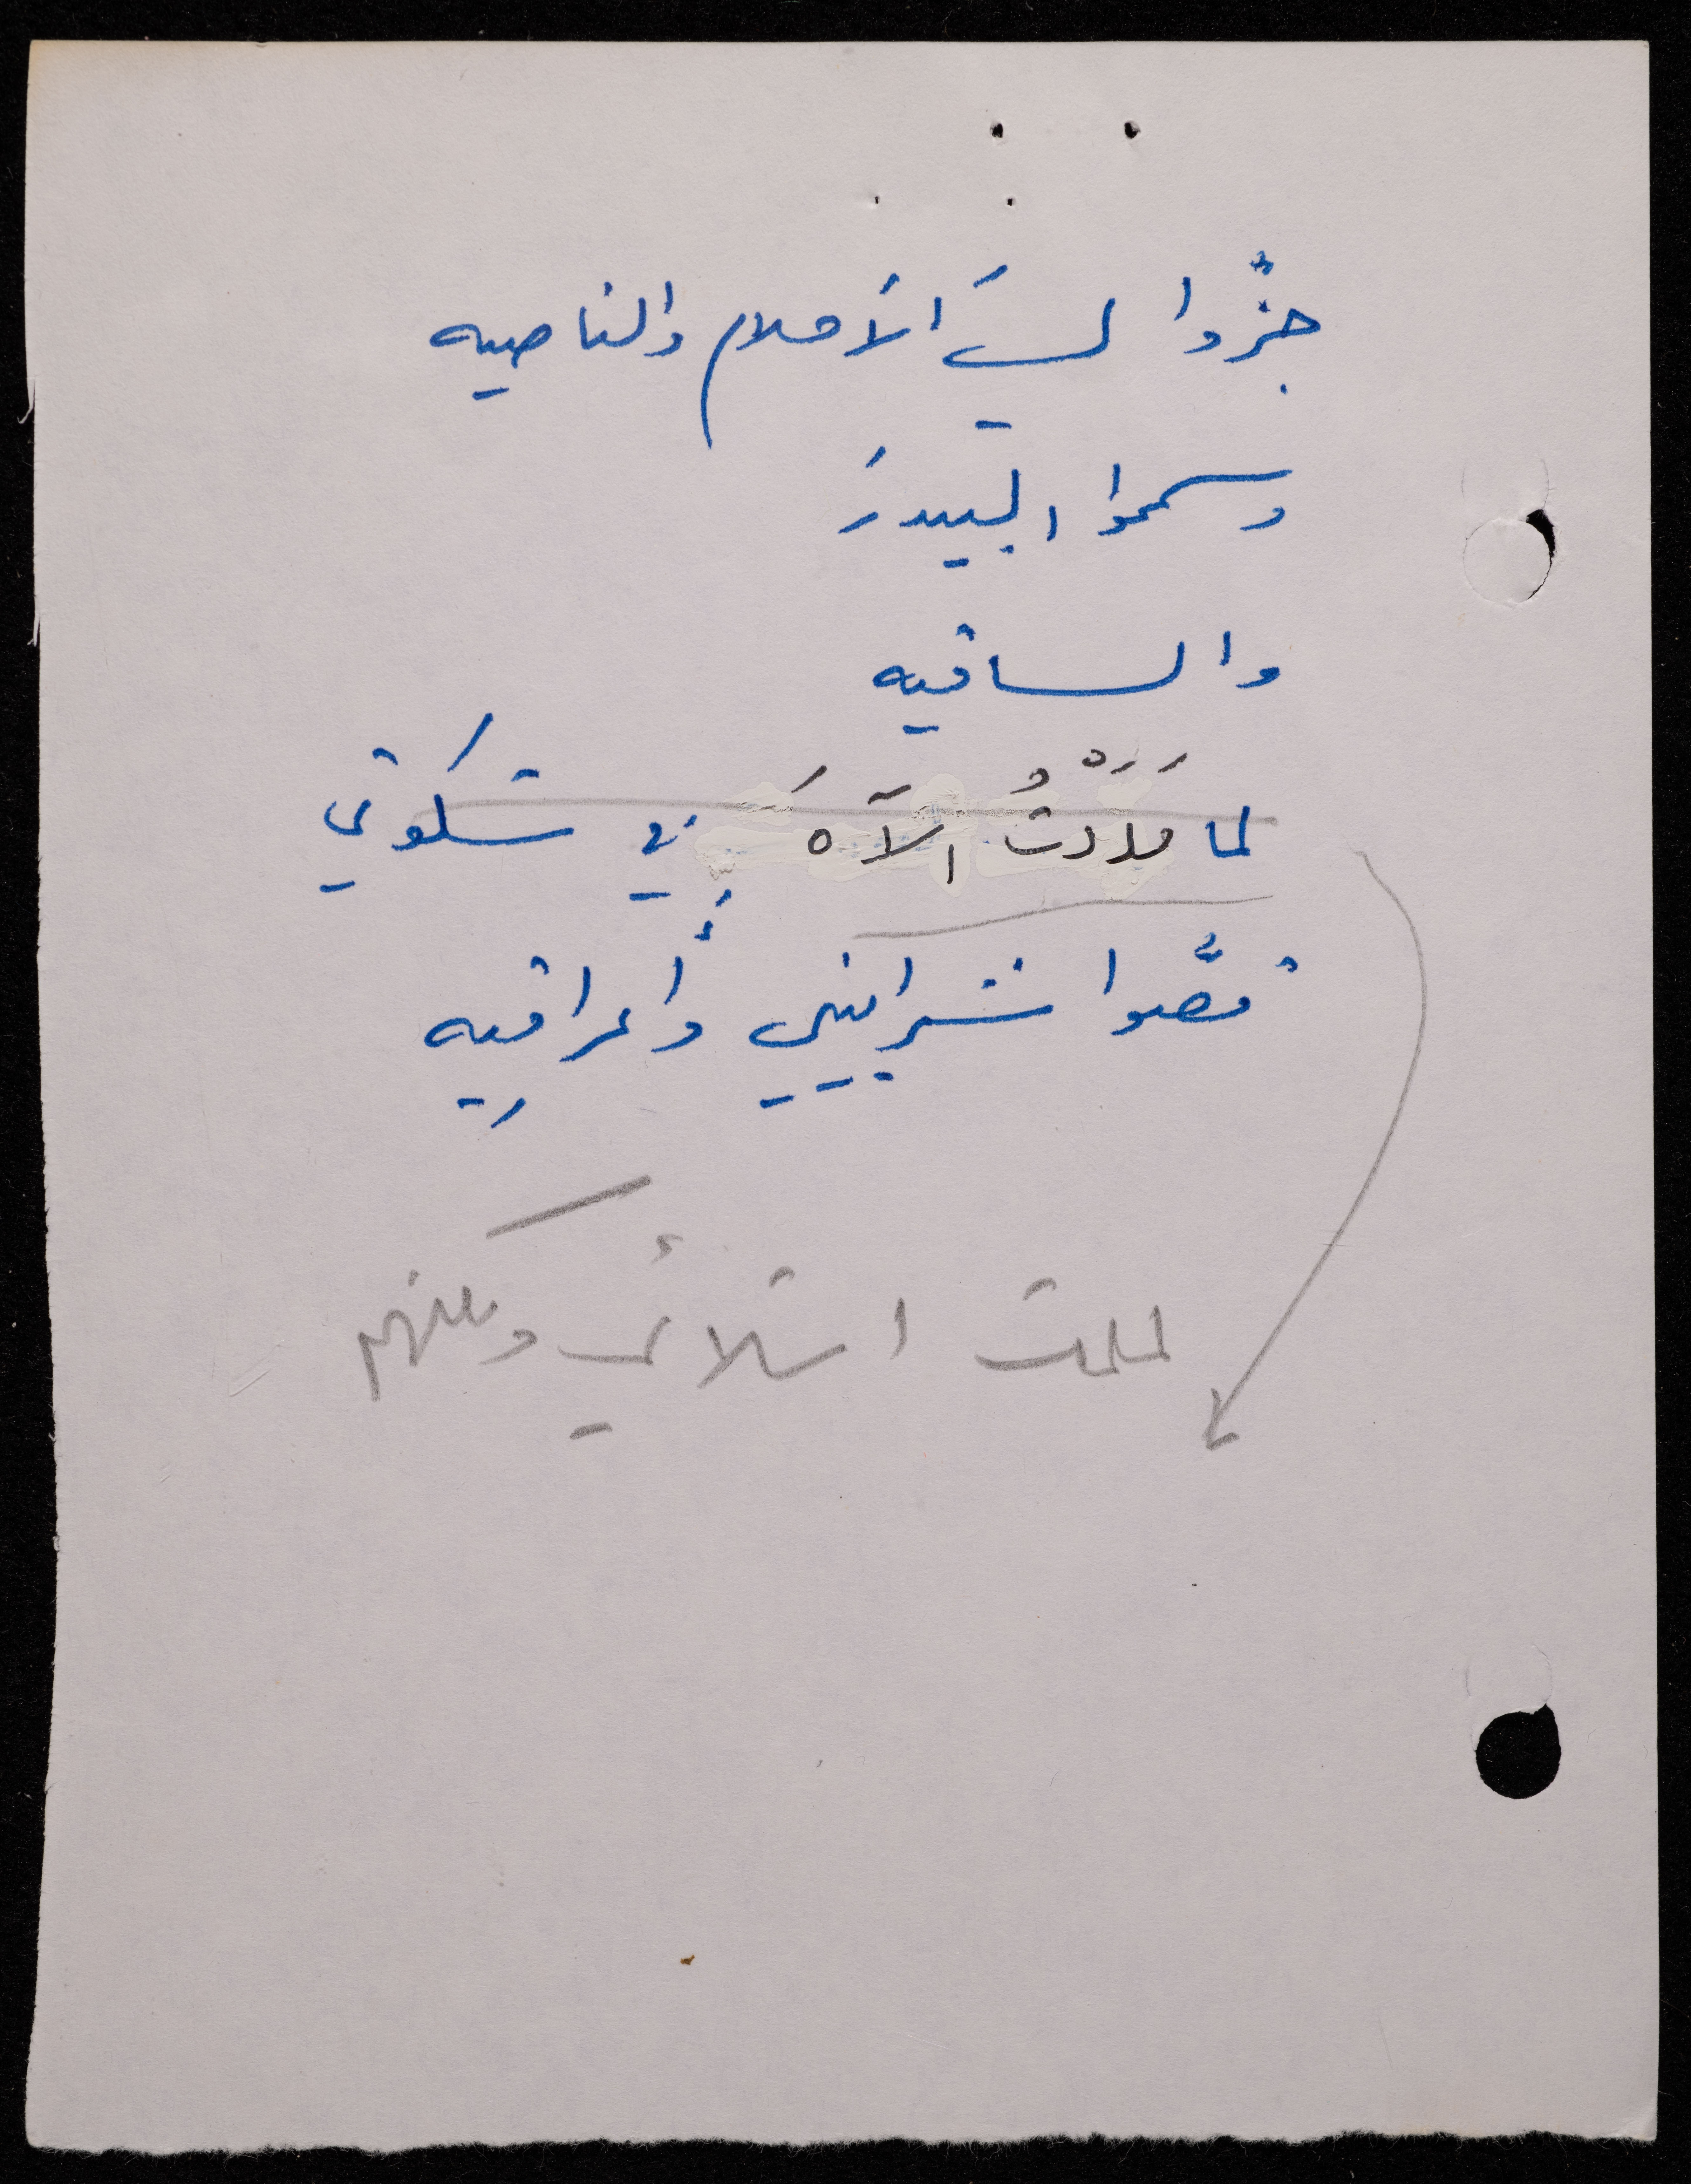 جزُّوا ليَ الأحلام والناصيه
وسمموا البيدرَ
والساقيه
لما مَدَدْتُ الآهَ في شكوتي
قصُّوا شراييني وأعراقيه
لملمت اشلائي ولكنهم